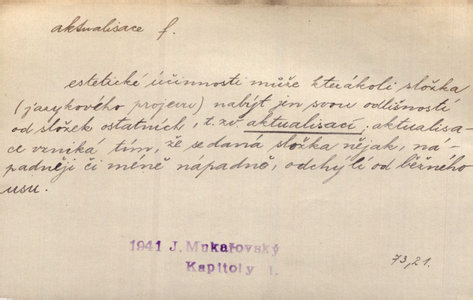 aktualisace f.
estetické účinnosti může kterákoli složka
(jazykového projevu) nabýt jen svou odlišností
od složek ostatních, t. zv. aktualisací; aktualisa
ce vzniká tím, že se daná složka nějak, ná-
padněji či méně nápadně, odchýlí od běžného
usu.
1941 J. Mukařovský
Kapitoly I.
73,21.